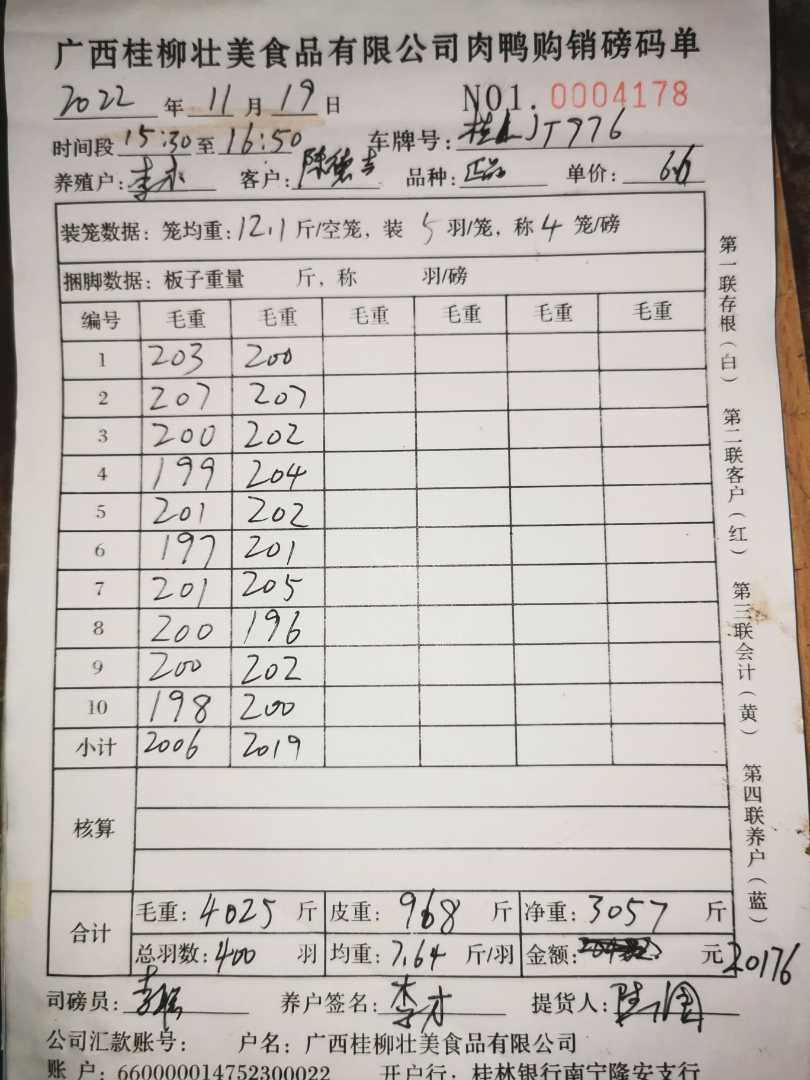 广西桂柳壮美食品有限公司肉鸭购销磅码单
2022 年 11 月 19 日 NO1. 0004178
时间段 15:30 至 16:50 车牌号: JT976
养殖户: 李才 客户: 陈德吉 品种: 正品 单价: 6.6
装笼数据: 笼均重: 12.1 斤/空笼, 装 5 羽/笼, 称 4 笼/磅
捆脚数据: 板子重量 斤, 称 羽/磅
编号 毛重 毛重 毛重 毛重 毛重 毛重
1 203 200
2 207 207
3 200 202
4 199 204
5 201 202
6 197 201
7 201 205
8 200 196
9 200 202
10 198 200
小计 2006 2019
核算
合计
毛重: 4025 斤 皮重: 968 斤 净重: 3057 斤
总羽数: 400 羽 均重: 7.64 斤/羽 金额: 元 20176
司磅员: 养户签名: 李才 提货人:
公司汇款账号: 户名: 广西桂柳壮美食品有限公司
账 户: 660000014752300022 开户行: 桂林银行南宁隆安支行
第一联存根(白) 第二联客户(红) 第三联会计(黄) 第四联养户(蓝)